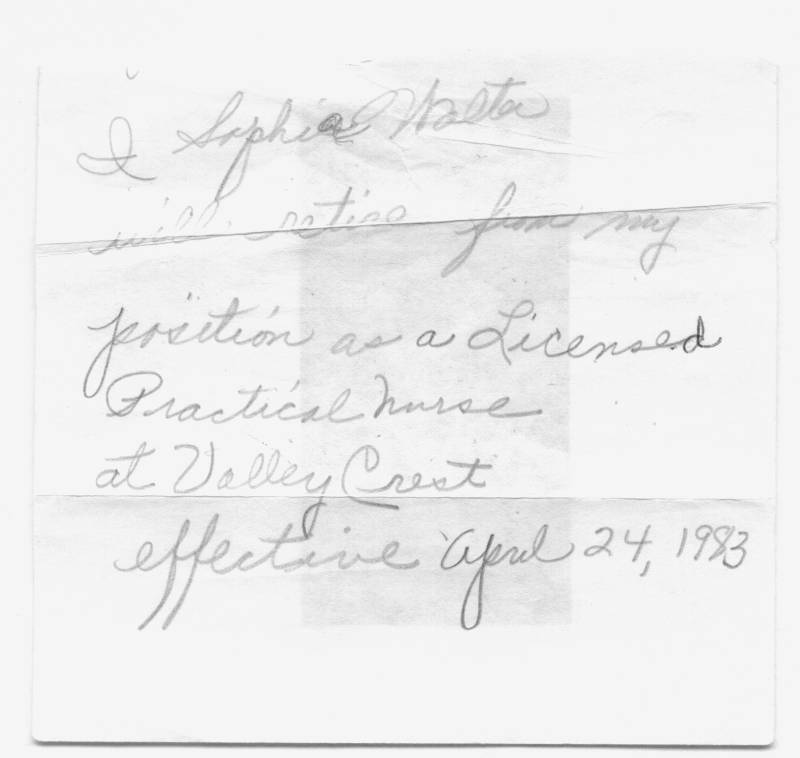 I Sophia Walta
will retire from my
position as a Licensed
Practical Nurse
at Valley Crest
effective April 24, 1983